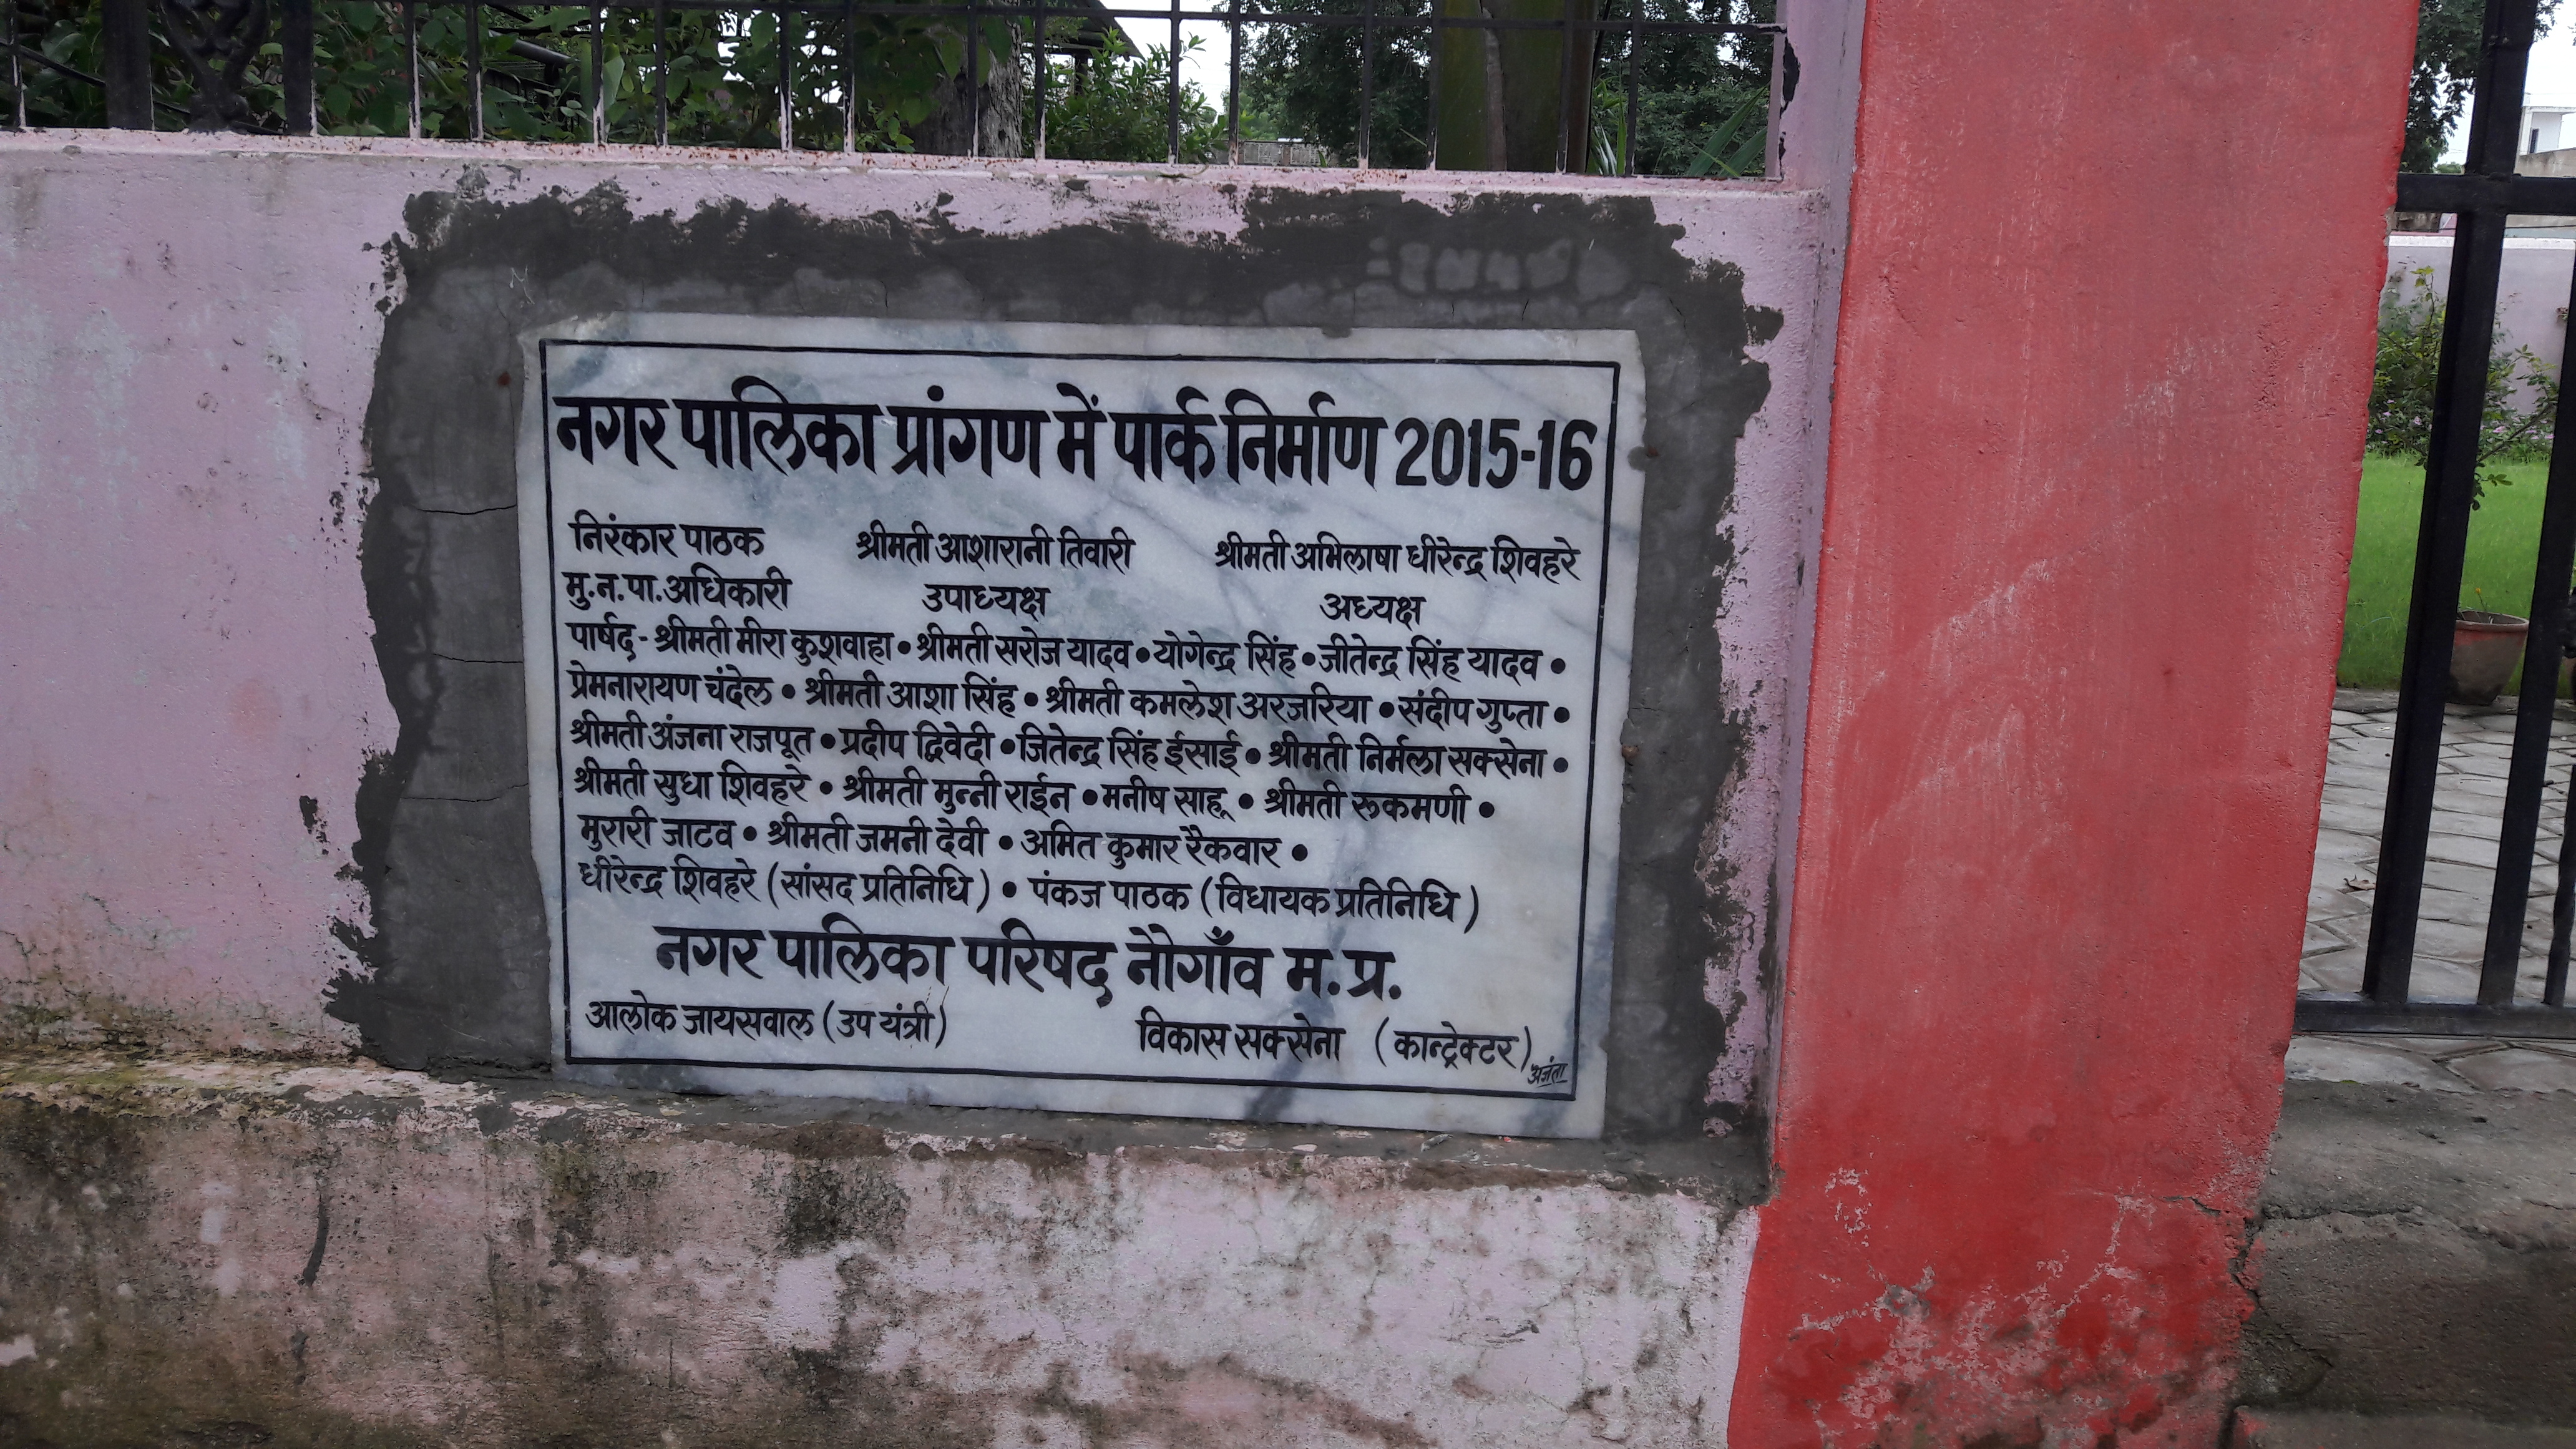 नगर पालिका प्रांगण में पार्क निर्माण 2015-16
निरंकार पाठक श्रीमती आशारानी तिवारी श्रीमती अभिलाषा धीरेन्द्र शिवहरे
मु.न.पा.अधिकारी उपाध्यक्ष अध्यक्ष
पार्षद- श्रीमती मीरा कुशवाहा • श्रीमती सरोज यादव • योगेन्द्र सिंह • जीतेन्द्र सिंह यादव •
प्रेमनारायण चंदेल • श्रीमती आशा सिंह • श्रीमती कमलेश अरजरिया • संदीप गुप्ता •
श्रीमती अंजना राजपूत • प्रदीप द्विवेदी • जितेन्द्र सिंह ईसाई • श्रीमती निर्मला सक्सेना •
श्रीमती सुधा शिवहरे • श्रीमती मुन्नी राईन • मनीष साहू • श्रीमती रूकमणी •
मुरारी जाटव • श्रीमती जमनी देवी • अमित कुमार रैकवार •
धीरेन्द्र शिवहरे (सांसद प्रतिनिधि) • पंकज पाठक (विधायक प्रतिनिधि)
नगर पालिका परिषद नौगाँव म.प्र.
आलोक जायसवाल (उप यंत्री) विकास सक्सेना (कान्ट्रेक्टर)
अजंता